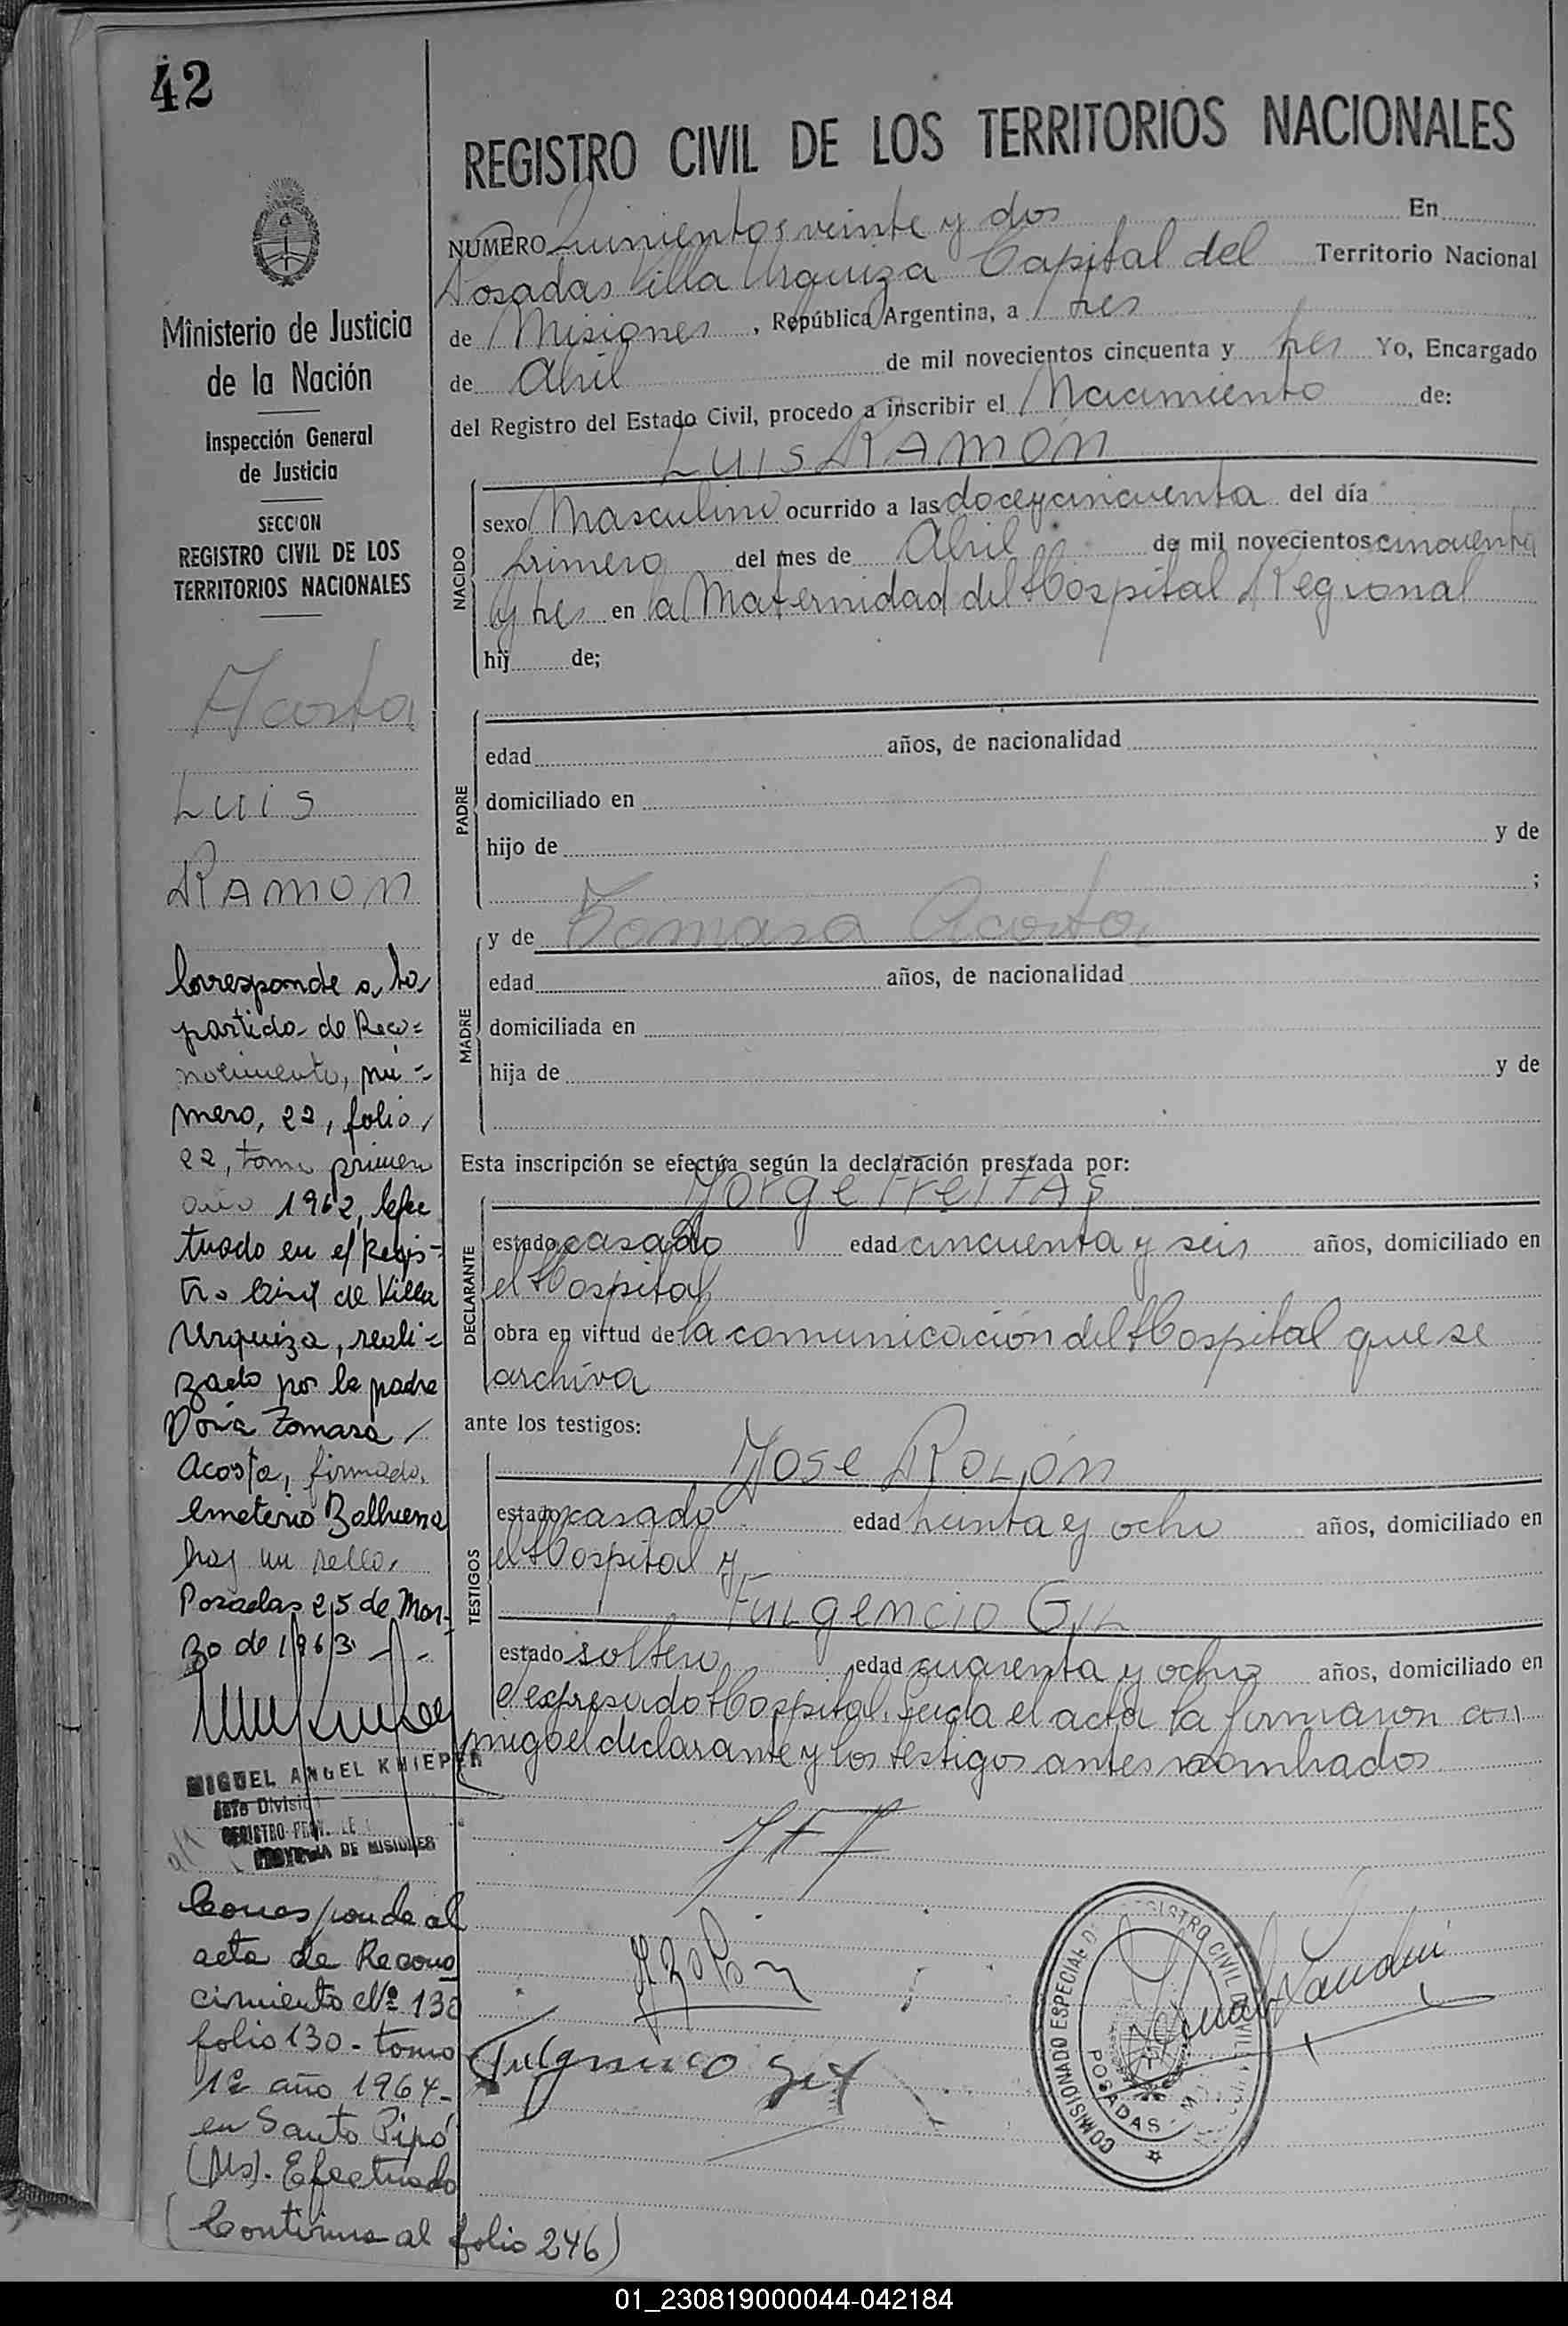 42
REGISTRO CIVIL DE LOS TERRITORIOS NACIONALES
NUMERO Quinientos veinte y dos En
Posadas Villa Urquiza Capital del Territorio Nacional
de Misiones, República Argentina, a tres
de Abril de mil novecientos cincuenta y tres Yo, Encargado
del Registro del Estado Civil, procedo a inscribir el Nacimiento de:
LUIS RAMÓN
NACIDO
sexo Masculino ocurrido a las doce y cincuenta del día
primero del mes de Abril de mil novecientos cincuenta
y tres en la Maternidad del Hospital Regional
hij de;
PADRE
edad años, de nacionalidad
domiciliado en
hijo de y de
;
MADRE
y de Tomasa Acosta
edad años, de nacionalidad
domiciliada en
hija de y de
Esta inscripción se efectúa según la declaración prestada por:
Jorge FreitAs
DECLARANTE
estado casado edad cincuenta y seis años, domiciliado en
el Hospital
obra en virtud de la comunicación del Hospital que se
archiva
ante los testigos:
TESTIGOS
Jose ROLÓN
estado casado edad treinta y ocho años, domiciliado en
el Hospital y
Fulgencio Gil
estado soltero edad cuarenta y ocho años, domiciliado en
el expresado Hospital. Leida el acta la firmaron con
migo el declarante y los testigos antes nombrados
Fulgencio Gil
COMISIONADO ESPECIAL DEL REGISTRO CIVIL
POSADAS
Ministerio de Justicia
de la Nación
Inspección General
de Justicia
SECCION
REGISTRO CIVIL DE LOS
TERRITORIOS NACIONALES
Acosta
Luis
RAMÓN
Corresponde a la
partida de Reco=
nocimiento, nú=
mero, 22, folio,
22, tomo primero
año 1962, efec
tuado en el Regis=
tro Civil de Villa
Urquiza, reali=
zado por la padre
Doña Tomasa
Acosta, firmado,
Emeterio Balbuena
hay un sello.
Posadas 25 de Mar-
zo de 1963
MIGUEL ANGEL KNIEPER
Jefe División
REGISTRO PROV. DE L
PROVINCIA DE MISIONES
Corresponde al
acta de Recono
cimiento Nº 130
folio 130 - tomo
1º año 1964-
en Santo Pipó
(Ms). Efectuado
(Continua al folio 246)
01_230819000044-042184